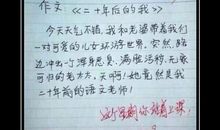 作文：《二十年后的我》
今天天气不错，我和老婆带着我们
一对可爱的儿女环游世界，突然，路
边冲出一个浑身恶臭，满脸污秽，无家
可归的老太太，天啊！她竟然是我
二十年前的语文老师！